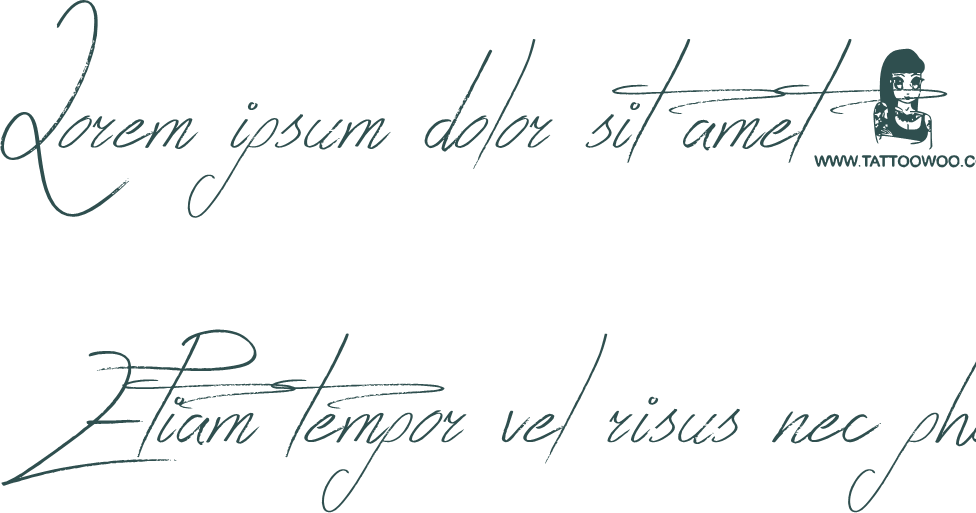 Lorem ipsum dolor sit amet
WWW.TATTOOWOO.C
Etiam tempor vel risus nec